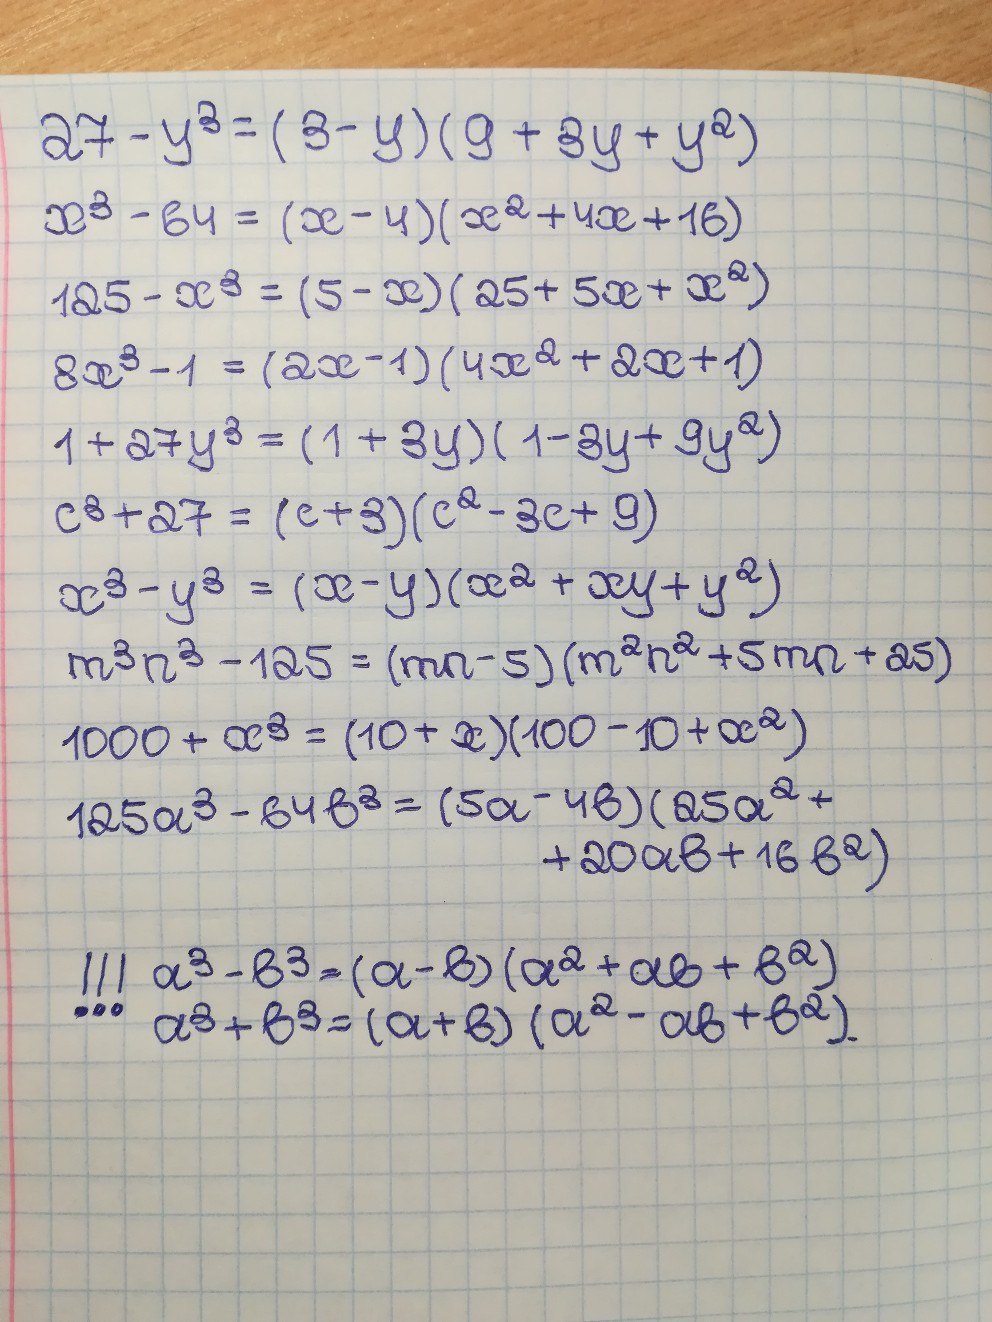 27 - y³ = (3 - y)(9 + 3y + y²)
x³ - 64 = (x - 4)(x² + 4x + 16)
125 - x³ = (5 - x)(25 + 5x + x²)
8x³ - 1 = (2x - 1)(4x² + 2x + 1)
1 + 27y³ = (1 + 3y)(1 - 3y + 9y²)
c³ + 27 = (c + 3)(c² - 3c + 9)
x³ - y³ = (x - y)(x² + xy + y²)
m³n³ - 125 = (mn - 5)(m²n² + 5mn + 25)
1000 + x³ = (10 + x)(100 - 10 + x²)
125a³ - 64b³ = (5a - 4b)(25a² +
+ 20ab + 16b²)
!!! a³ - b³ = (a - b)(a² + ab + b²)
a³ + b³ = (a + b)(a² - ab + b²).